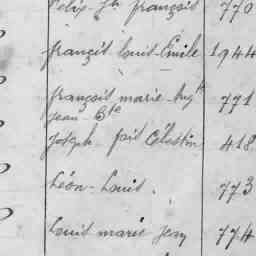 Félix - Jh françois 770
françois louis - Emile 1944
françois marie - Augte 771
Jean - Bte
Joseph fait Célestin 418
Léon - Louis. 773
Louis marie Jean 774